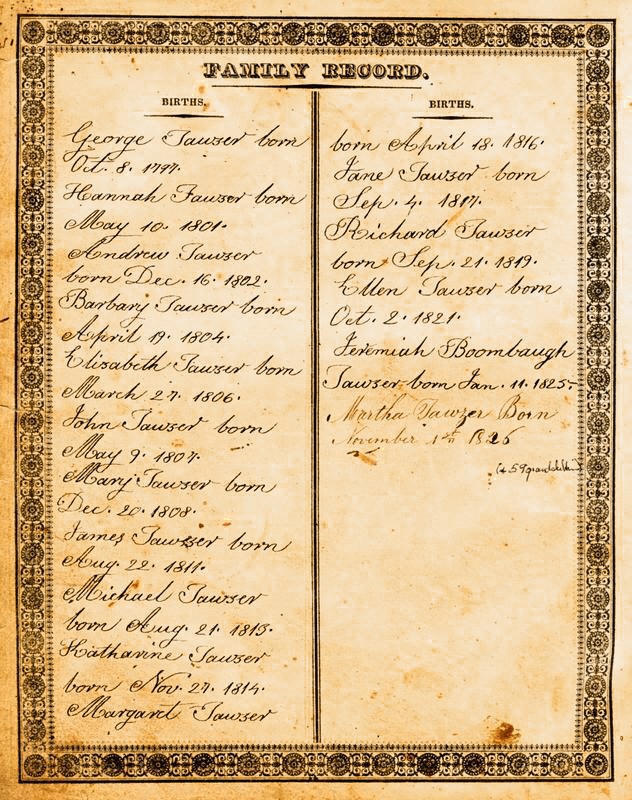 FAMILY RECORD.
BIRTHS.
George Tawser born
Oct. 8. 1797.
Hannah Tawser born
May 10. 1801.
Andrew Tawser
born Dec. 16. 1802.
Barbary Tawser born
April 19. 1804.
Elisabeth Tawser born
March 27. 1806.
John Tawser born
May 9. 1807.
Mary Tawser born
Dec. 20. 1808.
James Tawser born
Aug. 22. 1811.
Michael Tawser
born Aug. 21. 1813.
Katharine Tawser
born Nov. 27. 1814.
Margaret Tawser
BIRTHS.
born April 18. 1816.
Jane Tawser born
Sep. 4. 1817.
Richard Tawser
born Sep. 21. 1819.
Ellen Tawser born
Oct. 2. 1821.
Jeremiah Boombaugh
Tawser born Jan. 11. 1825.
Martha Tawzer Born
November 1th 1826
(+ 59 grandchildren)